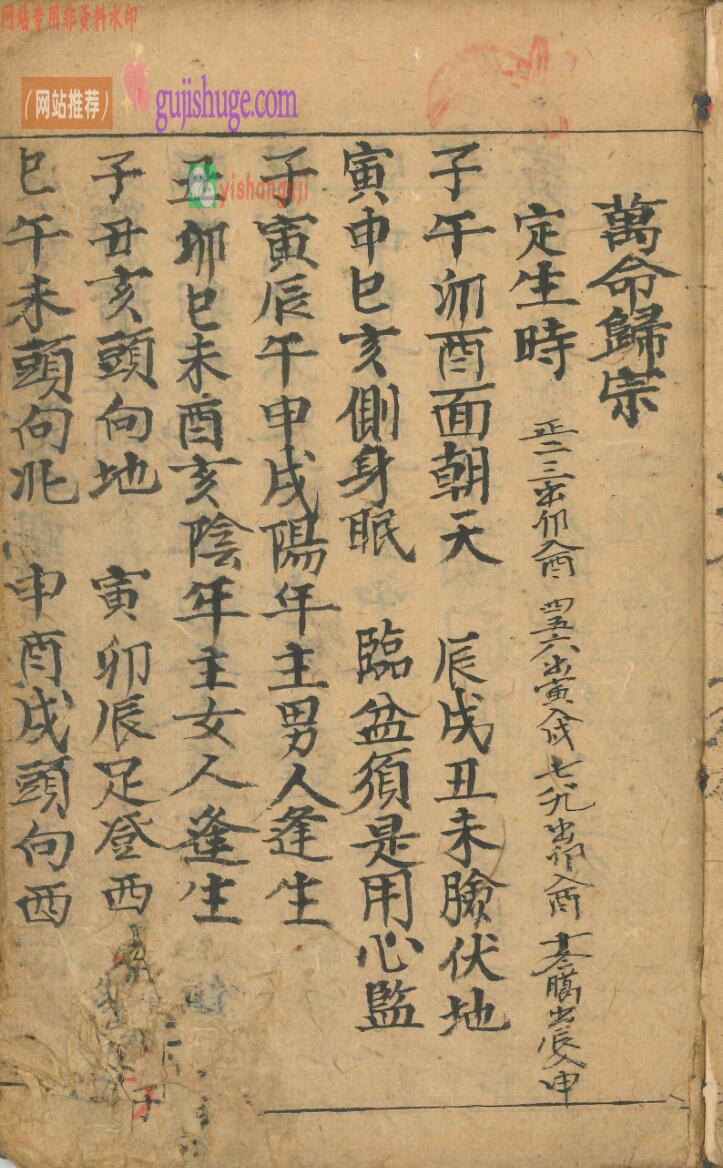 网站专用非资料水印
（网站推荐）
gujishuge.com
yishanguji
萬命歸宗
定生時
正二三出卯入酉 四五六出寅入戌 七八九出卯入酉 冬臘出辰入申
子午卯酉面朝天 辰戌丑未臉伏地
寅申巳亥側身眠 臨盆須是用心監
子寅辰午申戌陽年主男人逢生
丑卯巳未酉亥陰年主女人逢生
子丑亥頭向地 寅卯辰足登西
巳午未頭向北 申酉戌頭向西